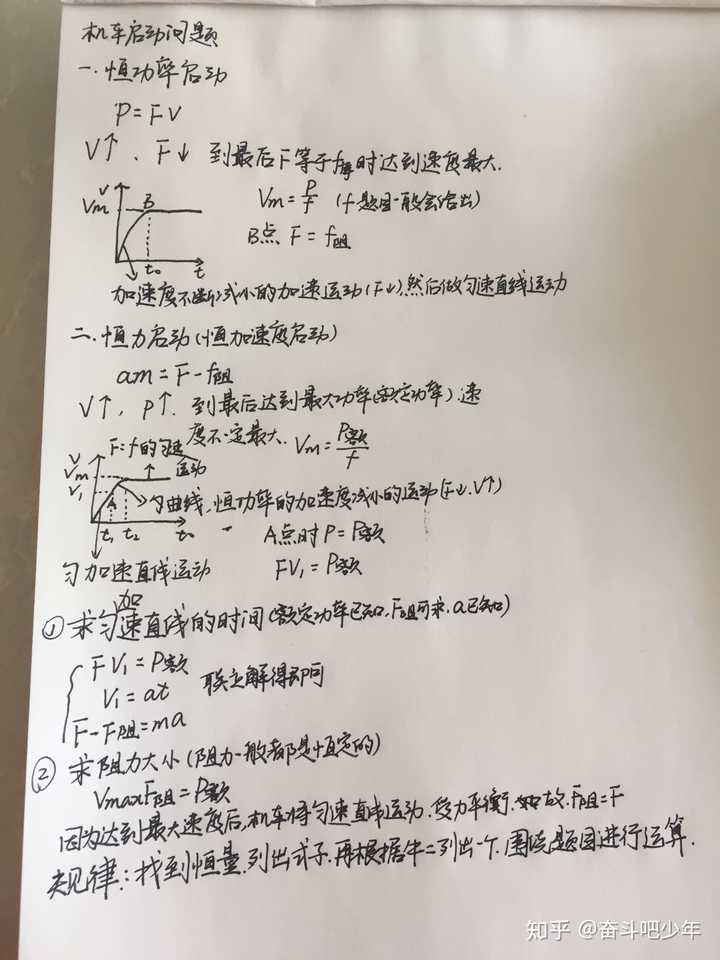 机车启动问题
一.恒功率启动
P=FV
V↑、F↓ 到最后F等于f阻时达到速度最大.
V
Vm
B
t₀
t
Vm=P/f (f题目一般会给出)
B点 F=f阻
加速度不断减小的加速运动(F↓),然后做匀速直线运动
二.恒力启动(恒加速度启动)
am=F-f阻
V↑, P↑. 到最后达到最大功率(额定功率).速
度不一定最大. Vm=P额/f
F=f的匀速
运动
V
Vm
V₁
A
t₁
t₂
曲线,恒功率的加速度减小的运动(F↓.V↑)
A点时P=P额
匀加速直线运动
FV₁=P额
①求匀加速直线的时间(额定功率已知,F阻可求.a已知)
FV₁=P额
V₁=at
F-F阻=ma
联立解得即可
②求阻力大小(阻力一般都是恒定的)
VmaxF阻=P额
因为达到最大速度后,机车将匀速直线运动.受力平衡.故.F阻=F
规律:找到恒量.列出式子.再根据牛二列出一个.围绕题目进行运算.
知乎 @奋斗吧少年